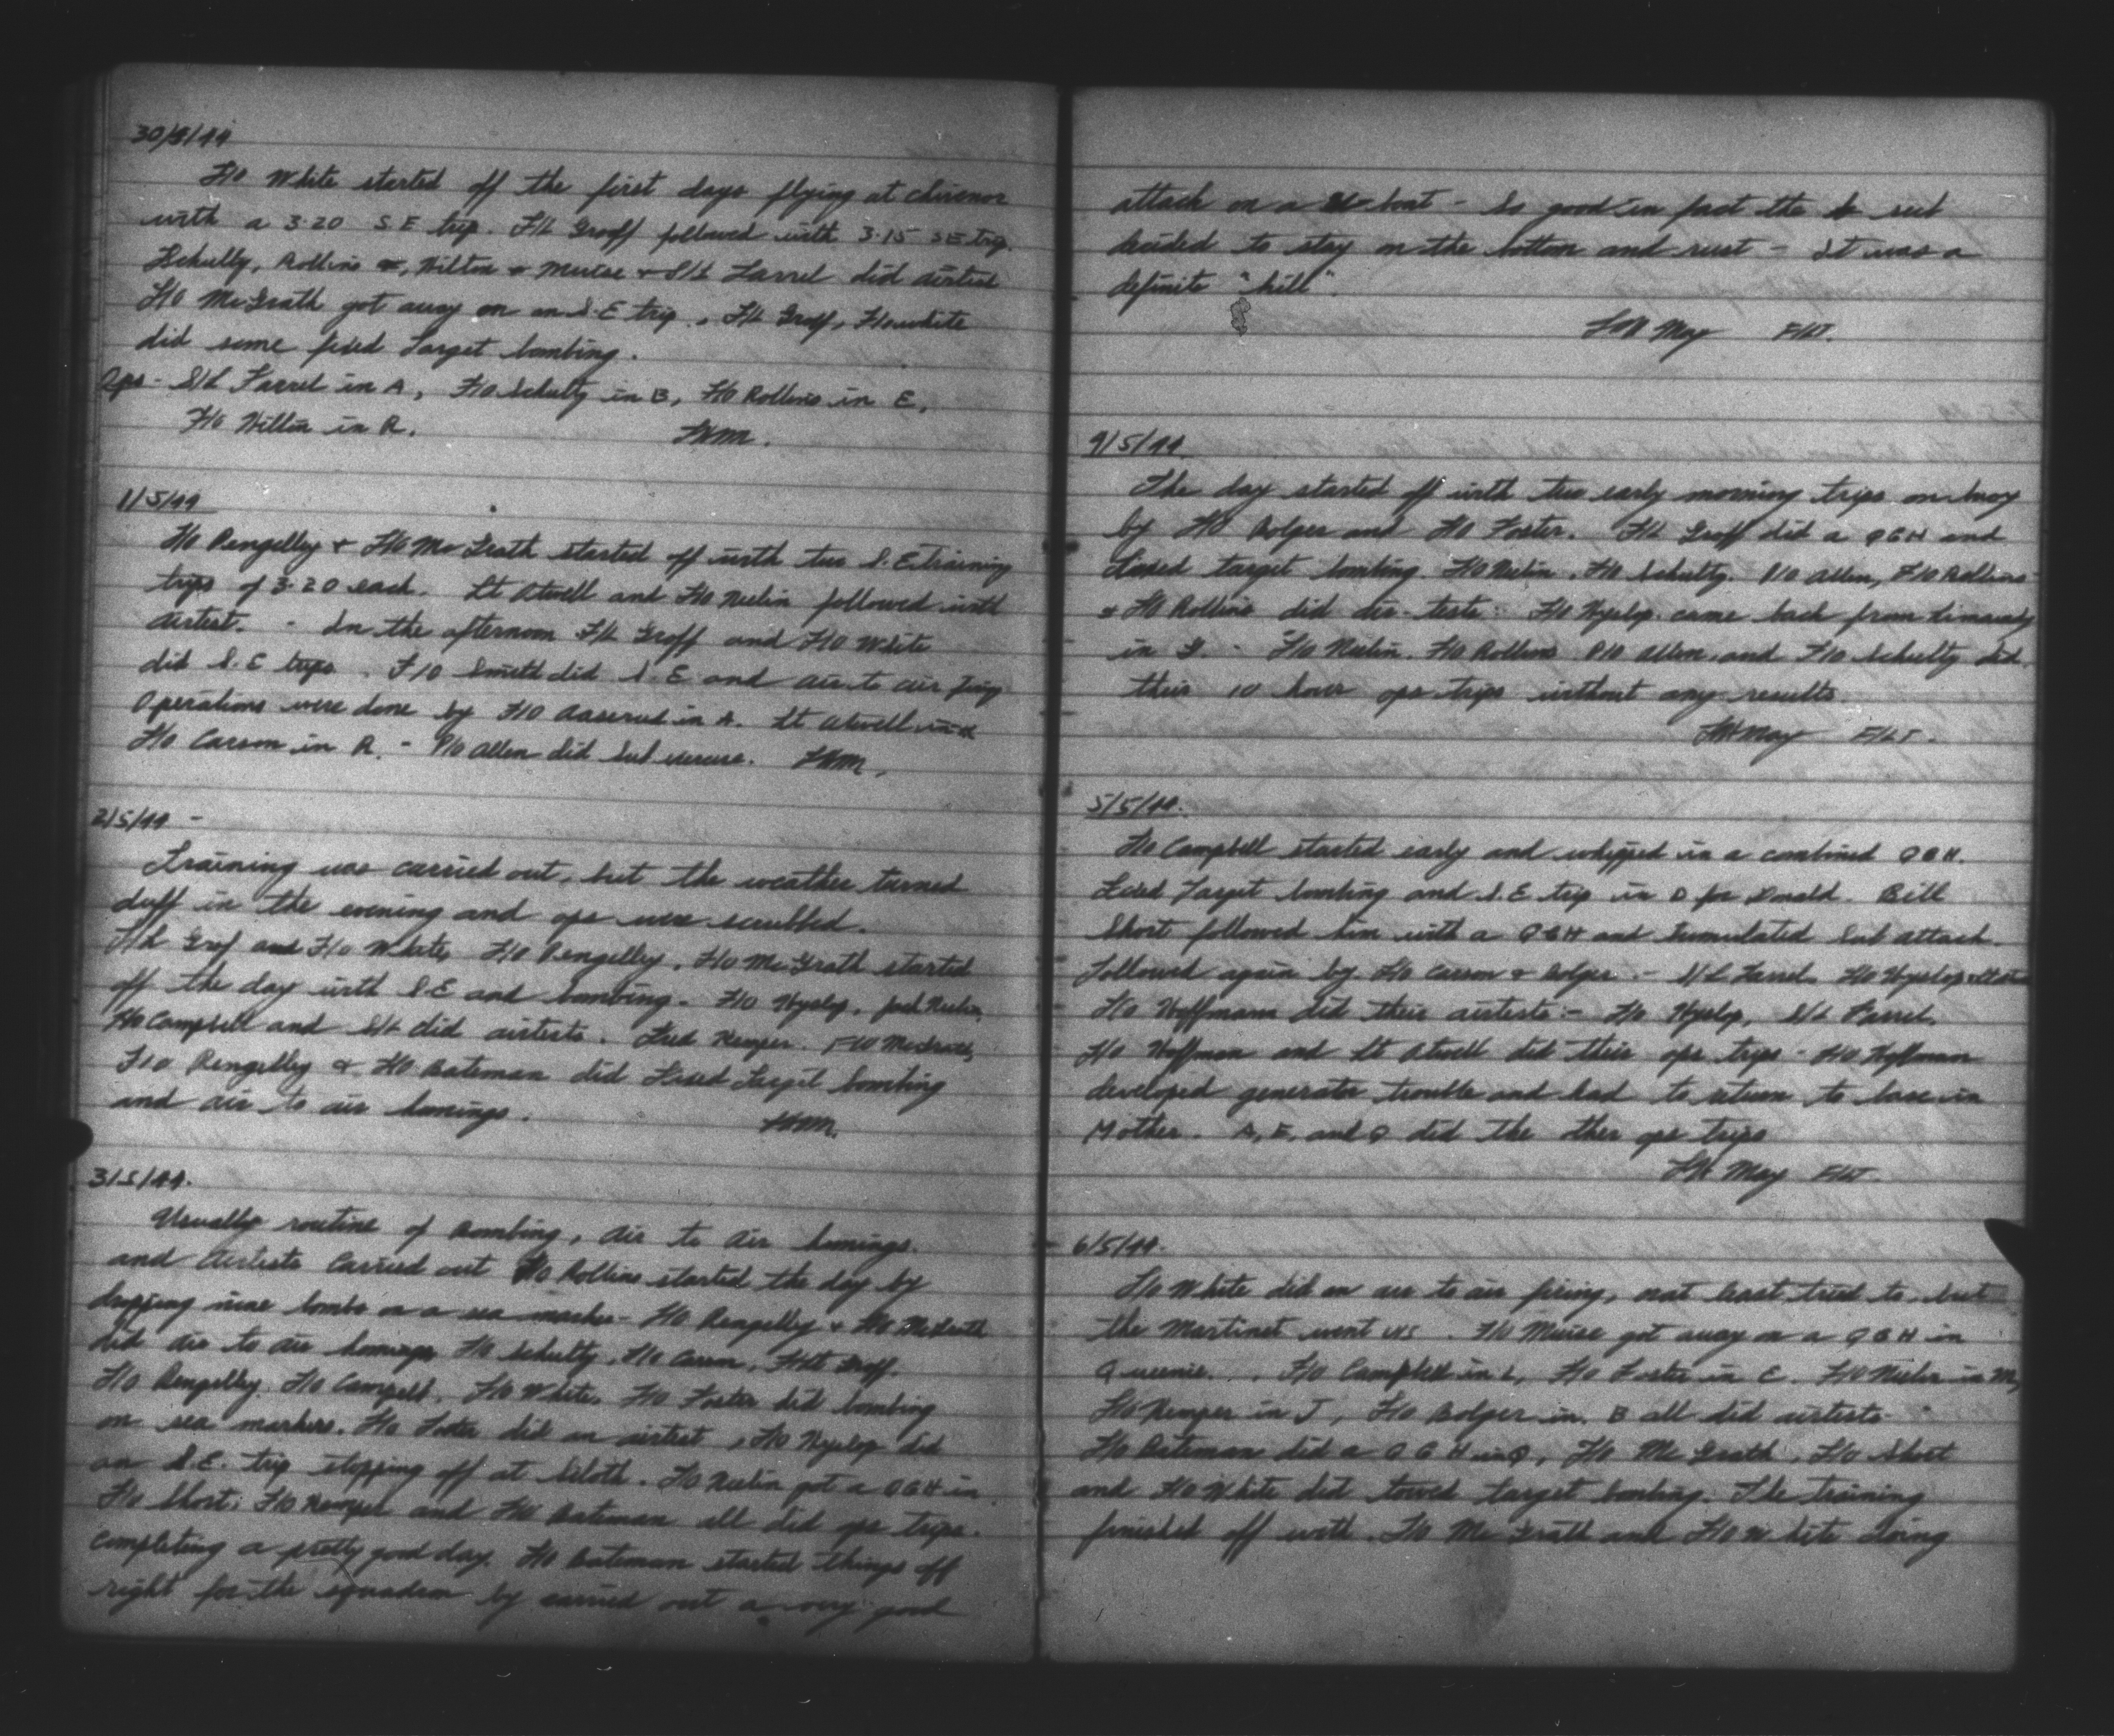 30/4/44
F/O White started off the first days flying at chivenor
with a 3.20 S E trip. F/L Groff followed with 3.15 SE trip.
Schulty, Rollins &, Hilton & Muise & S/L Farrel did airtest
F/O McGrath got away on an S.E trip., F/L Groff, F/O white
did some fixed Target bombing.
Ops - S/L Farrel in A, F/O Schulty in B, F/O Rollins in E,
F/O Hilton in R.
1/5/44
F/O Pengelley & F/O McGrath started off with two S.E training
trips of 3.20 each. Lt Atwell and F/O Neelin followed with
airtest. - In the afternoon F/L Groff and F/O White
did S.E trips. F/O Smith did S.E and air to air firing
Operations were done by F/O in A. Lt Atwell in
F/O Carson in R. - P/O Allen did Sub exercise.
2/5/44 -
Training was carried out, but the weather turned
duff in the evening and ops were scrubbed.
F/L Grof and F/O White, F/O Pengelley, F/O McGrath started
off the day with S.E and bombing. F/O Hyslop, Neelin,
F/O Campbell and S/L did airtests. Fred Kemper. F/O McGrath,
F/O Pengelley & F/O Bateman did Fixed Target bombing
and air to air homings.
3/5/44.
Usually routine of Bombing, air to air homings.
and Airtests Carried out F/O Rollins started the day by
dropping nine bombs on a sea marker - F/O Pengelley & F/O McGrath
did air to air homings F/O Schulty, F/O Carson, F/Lt Groff.
F/O Pengelley, F/O Campbell, F/O White, F/O Foster did bombing
on sea markers. F/O Foster did an airtest, F/O Hyslop did
an S.E. trip stopping off at Siloth. F/O Neelin got a QGH in
F/O Short, F/O Kemper and F/O Bateman all did ops trips.
completing a pretty good day. F/O Bateman started things off
right for the squadron by carried out a very good
attack on a U-boat - So good in fact the sub
decided to stay on the bottom and rust - It was a
definite "kill".
May F/LT.
4/5/44
The day started off with two early morning trips on buoy
by F/O Bolger and F/O Foster. F/L Groff did a QGH and
fixed target bombing. F/O Neelin, F/O Schulty. P/O Allen, F/O Rollins
& F/O Rollins did air-tests. F/O Hyslop came back from Limavady
in G. - F/O Neelin. F/O Rollins P/O Allen, and F/O Schulty did
their 10 hour ops trips without any results.
May F/LT.
5/5/44.
F/O Campbell started early and whipped in a combined QGH.
Fixed Target bombing and S.E trip in D for Donald. Bill
Short followed him with a QGH and Simulated Sub attack.
followed again by F/O Carson & Bolger. - S/L Farrel. F/O Hyslop
F/O Hoffmann did their airtests - F/O Hyslop, S/L Farrel.
F/O Hoffman and Lt Atwell did their ops trips - F/O Hoffman
developed generator trouble and had to return to base in
Mother. A, E, and Q did the other ops trips
May F/LT.
6/5/44.
F/O White did an air to air firing, or at least tried to, but
the Martinet went U/S. F/O Muise got away on a QGH in
Queenie. F/O Campbell in L, F/O Foster in E. F/O Neelin in M,
F/O Kemper in J, F/O Bolger in B all did airtests.
F/O Bateman did a QGH in Q, F/O McGrath, F/O Short
and F/O White did towed target bombing. The training
finished off with F/O McGrath and F/O White doing